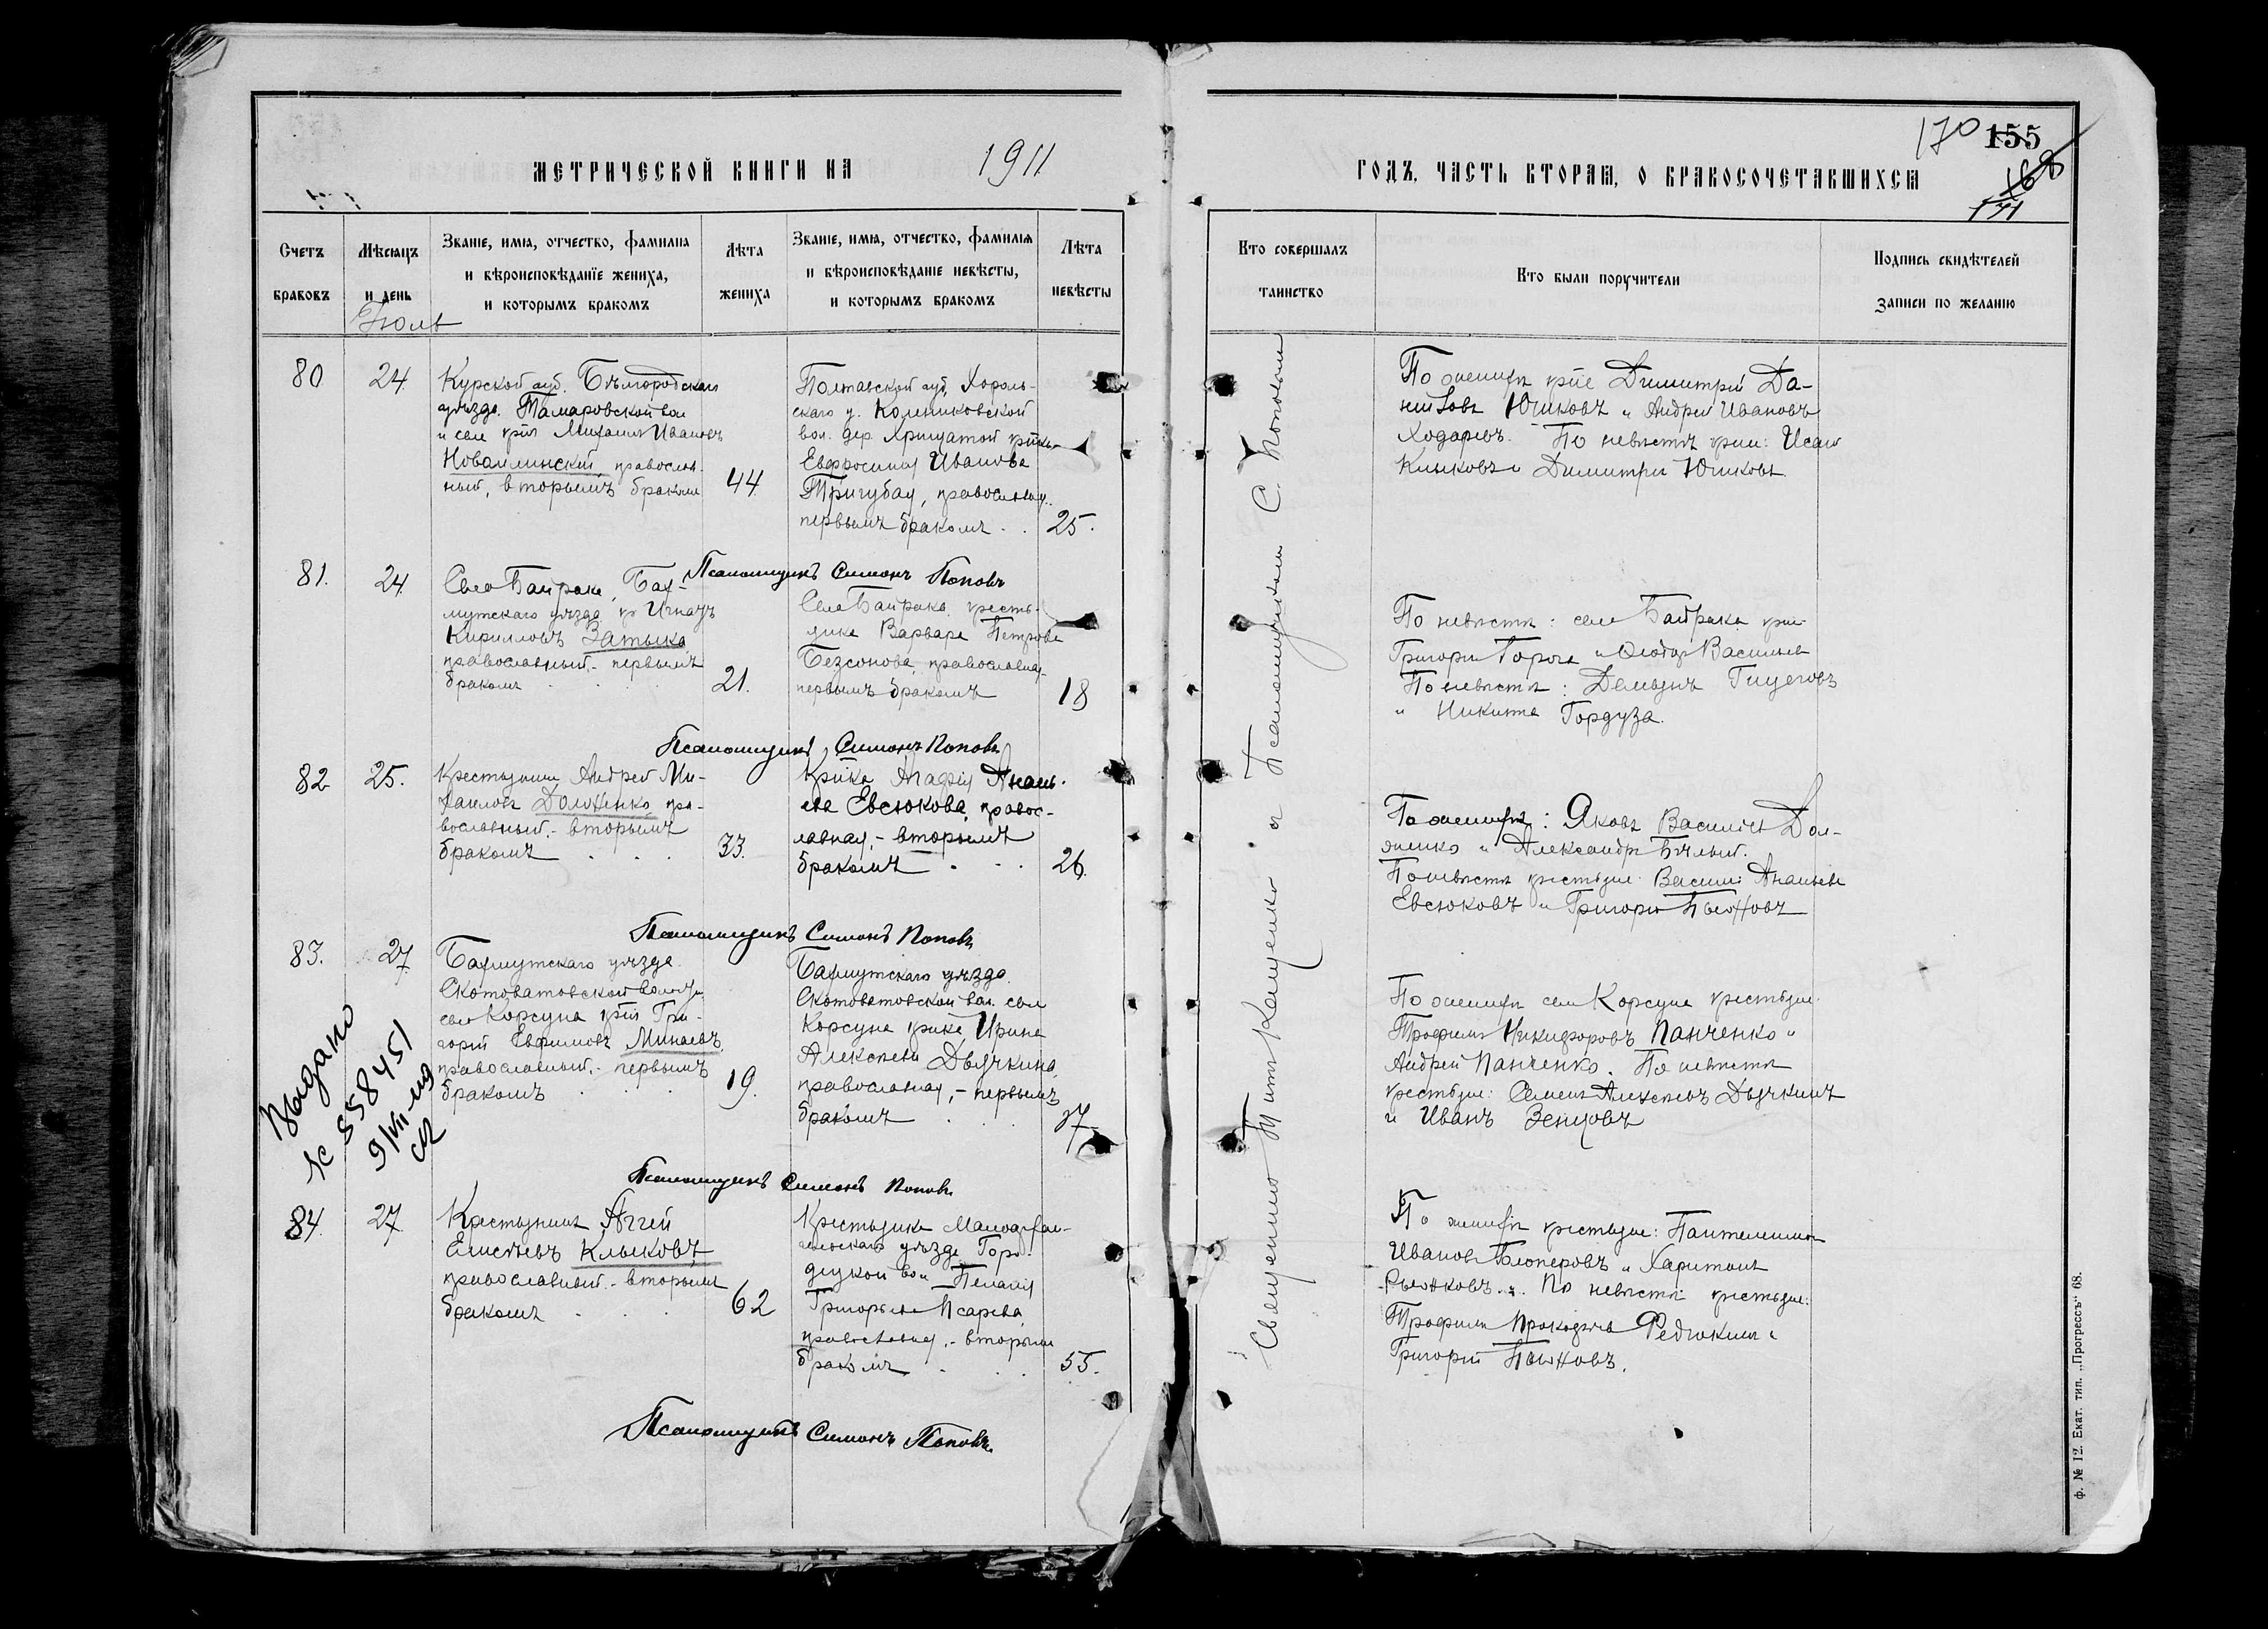 МЕТРИЧЕСКОЙ КНИГИ НА 1911
ГОДЪ, ЧАСТЬ ВТОРАЯ, О БРАКОСОЧЕТАВШИХСЯ
170 155
168
171
Счетъ браковъ
Мѣсяцъ и день
Званіе, имя, отчество, фамилія и вѣроисповѣданіе жениха, и которымъ бракомъ
Лѣта жениха
Званіе, имя, отчество, фамилія и вѣроисповѣданіе невѣсты, и которымъ бракомъ
Лѣта невѣсты
Кто совершалъ таинство
Кто были поручители
Подпись свидѣтелей записи по желанію
Іюль
80
24
Курской губ. Бѣлгородскаго
уѣзда. Тамаровской вол
и села Михаилъ Ивановъ
православ-
ный, вторымъ бракомъ
44
Полтавской губ. Хороль-
скаго у.
вол. дер.
Евфросинія Иванова
Тригубая, православная,
первымъ бракомъ
25.
По женихѣ Димитрій Да-
ниловъ Юшковъ и Андрей Ивановъ
Ходаревъ. По невѣстѣ
Клыковъ и Димитрій Юшковъ
Псаломщикъ Симонъ Поповъ
81.
24
Село Байрака, Бах-
мутскаго уѣзда кр Игнатъ
Кирилловъ Затыка
православный, - первымъ
бракомъ
21.
Села Байрака, кресть-
янка Варвара Петрова
Безсонова, православная,
первымъ бракомъ
18
По невѣстѣ: села Байрака
Григорій и Ѳеодоръ Васильевъ
По невѣстѣ: Демьянъ
и Никита Гордуза.
Псаломщикъ Симонъ Поповъ
82
25.
Крестьянинъ Андрей Ми-
хаиловъ Долженко, пра-
вославный, - вторымъ
бракомъ
33.
Кр-ка Агафія Анань-
ева Евсюкова, правос-
лавная, - вторымъ
бракомъ
26.
По женихѣ: Яковъ Васильевъ Дол-
женко и Александръ Бѣлый.
По невѣстѣ крестьяне: Василій Ананьевъ
Евсюковъ и Григорій
Псаломщикъ Симонъ Поповъ
83.
27
Бахмутскаго уѣзда
Скотоватовской волости
села Корсуна Гри-
горій Евфимовъ Минаевъ,
православный, - первымъ
бракомъ
19.
Бахмутскаго уѣзда.
Скотоватовской вол. села
Корсуна Ирина
Алексѣева Дьячкина,
православная, - первымъ
бракомъ
17
По женихѣ села Корсуна крестьяне
Трофимъ Никифоровъ Панченко и
Андрей Панченко. По невѣстѣ
крестьяне: Семенъ Алексѣевъ Дьячкинъ
и Иванъ Зенцовъ
Псаломщикъ Симонъ Поповъ
Выдано
№ 558451
9/VII-49
84.
27
Крестьянинъ Аггей
Елисѣевъ Клыковъ,
православный, - вторымъ
бракомъ
62
Крестьянка Малоархан-
гельскаго уѣзда
вол Пелагія
Григорьева Псарева,
православная, - вторымъ
бракомъ
55.
По женихѣ крестьяне: Пантелеимонъ
Ивановъ и Харитонъ
Рыжковъ. По невѣстѣ крестьяне:
Трофимъ Федюкинъ и
Григорій
Псаломщикъ Симонъ Поповъ.
Священникъ Титъ съ Псаломщикомъ С. Поповымъ
ф. № 12. Екат. тип. „Прогрессъ“ 68.